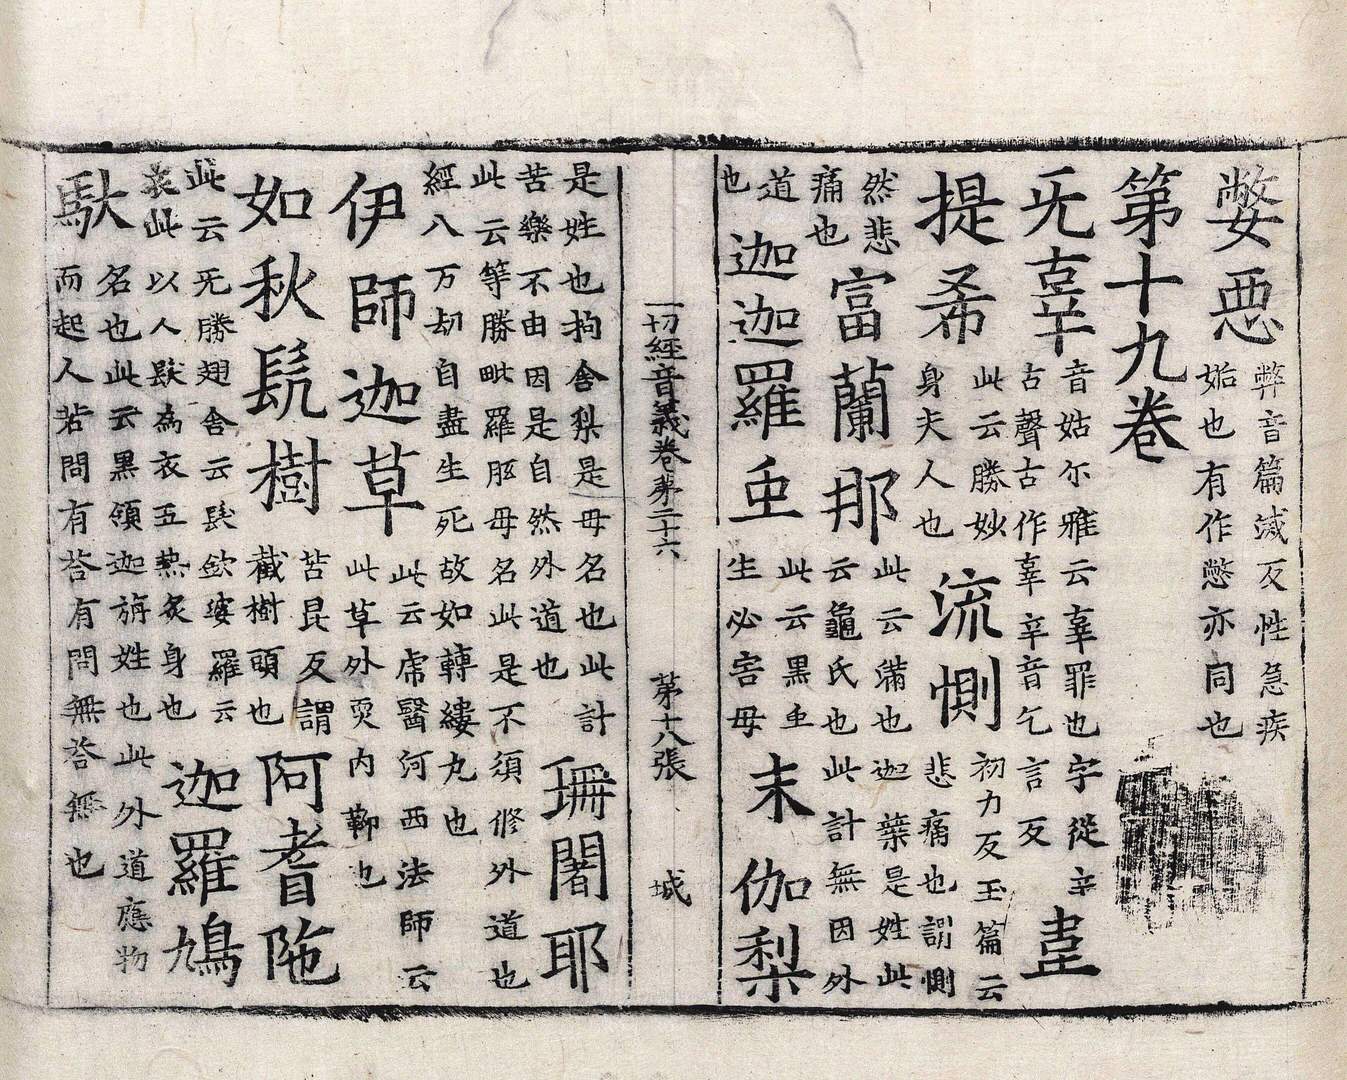 嫳惡 弊音篇滅反性急疾
妒也有作憋亦同也
第十九卷
旡辜 音姑尒雅云辜罪也字從辛
古聲古作辠辛音乞言反
韋提希 此云勝妙
身夫人也
流惻 初力反玉篇云
悲痛也謂惻
然悲
痛也
富蘭那 此云滿也迦葉是姓此
云龜氏也此計無因外
道
也
迦迦羅虫 此云黑虫
生必害母
末伽梨
一切經音義卷第二十六 第十八張 城
是姓也拘舍梨是母名也此計
苦樂不由因是自然外道也
珊闍耶
此云等勝毗羅胝母名此是不須修外道也
經八万劫自盡生死故如轉縷丸也
伊師迦草 此云虎鬚河西法師云
此草外耎内鞕也
如秋髡樹 苦昆反謂
截樹頭也
阿耆陁
此云旡勝翅舍云髮欽婆羅云
衣此以人髮為衣五熱炙身也
迦羅鳩
馱 名也此云黑領迦旃姓也此外道應物
而起人若問有荅有問無荅無也